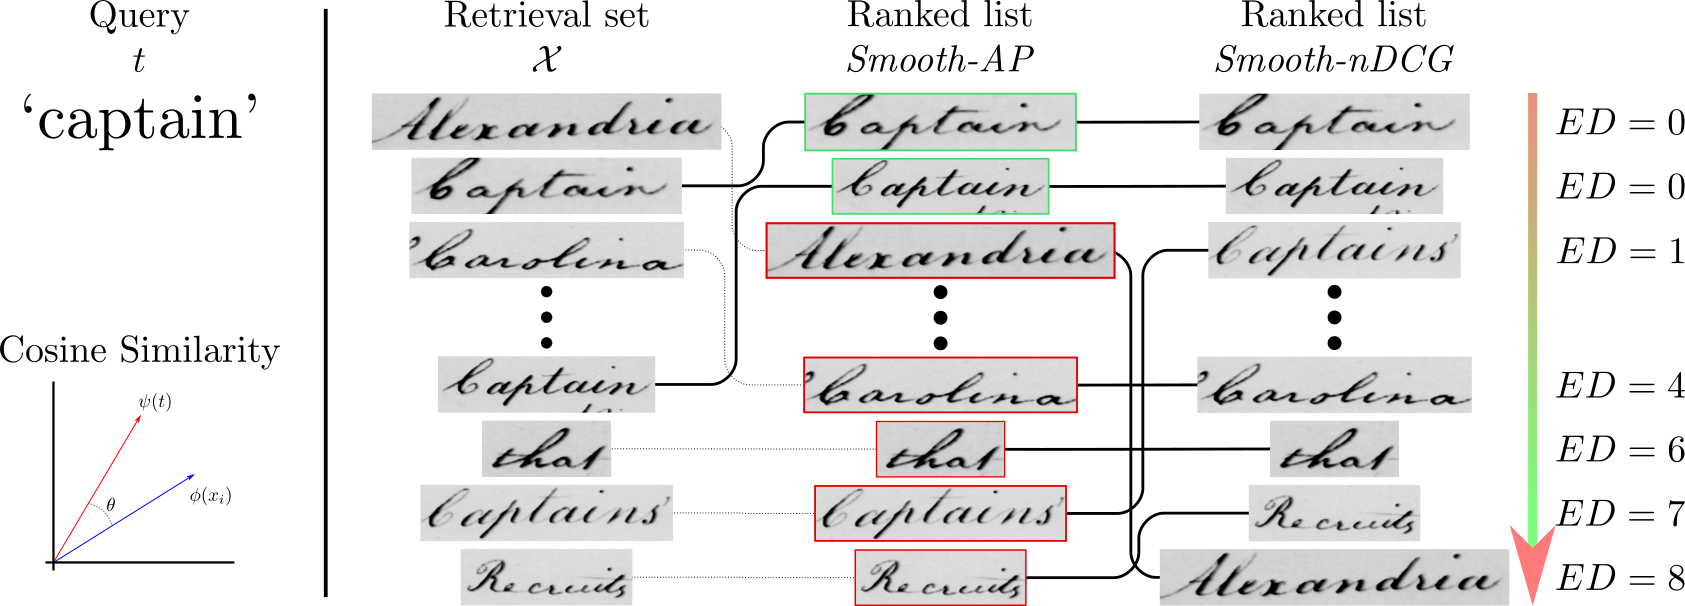 Query
t
‘captain’
Cosine Similarity
ψ(t)
ϕ(x_i)
θ
Retrieval set
𝒳
Alexandria
Captain
Carolina
Captain
that
Captains'
Recruits
Ranked list
Smooth-AP
Captain
Captain
Alexandria
Carolina
that
Captains'
Recruits
Ranked list
Smooth-nDCG
Captain
Captain
Captains'
Carolina
that
Recruits
Alexandria
ED = 0
ED = 0
ED = 1
ED = 4
ED = 6
ED = 7
ED = 8